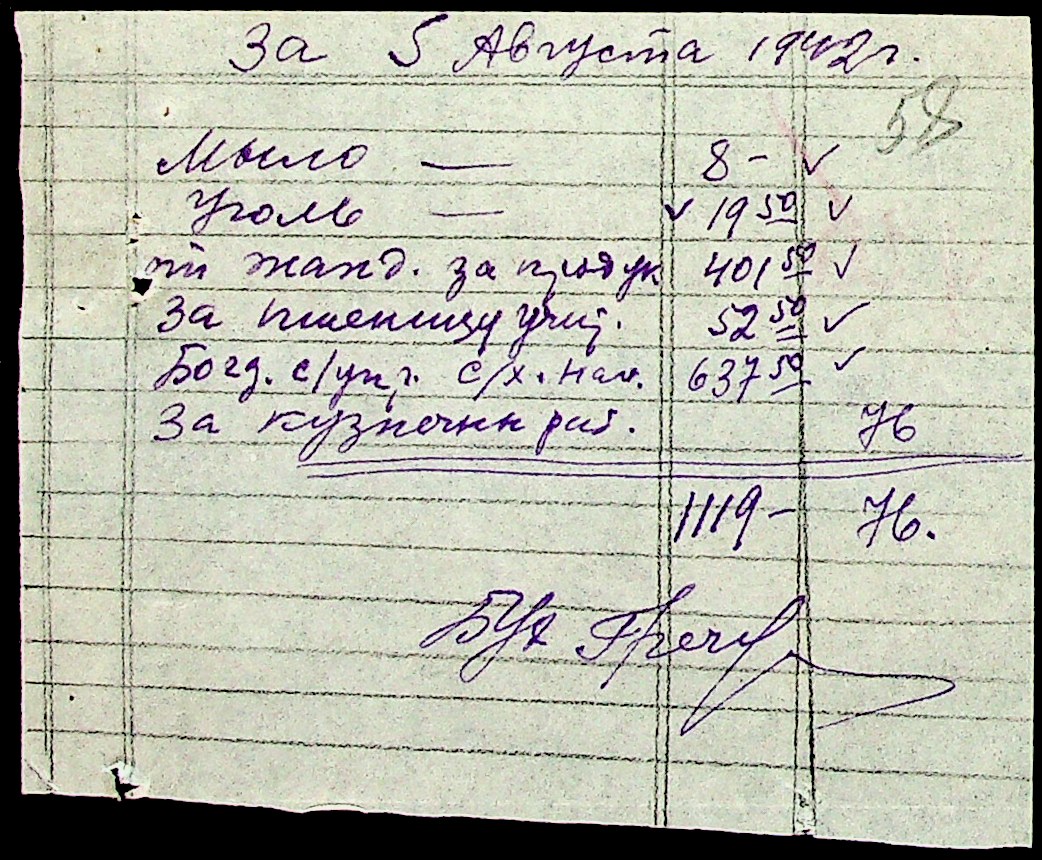 За 5 Августа 1942 г.
58
Мыло — 8 –
Уголь — 19 50
жанд. за продук 401 50
За пшеницу 52 50
Богд. с/упр. с/х. нал. 637 50
За кузнечн раб. 76
1119 – 76.
Бух